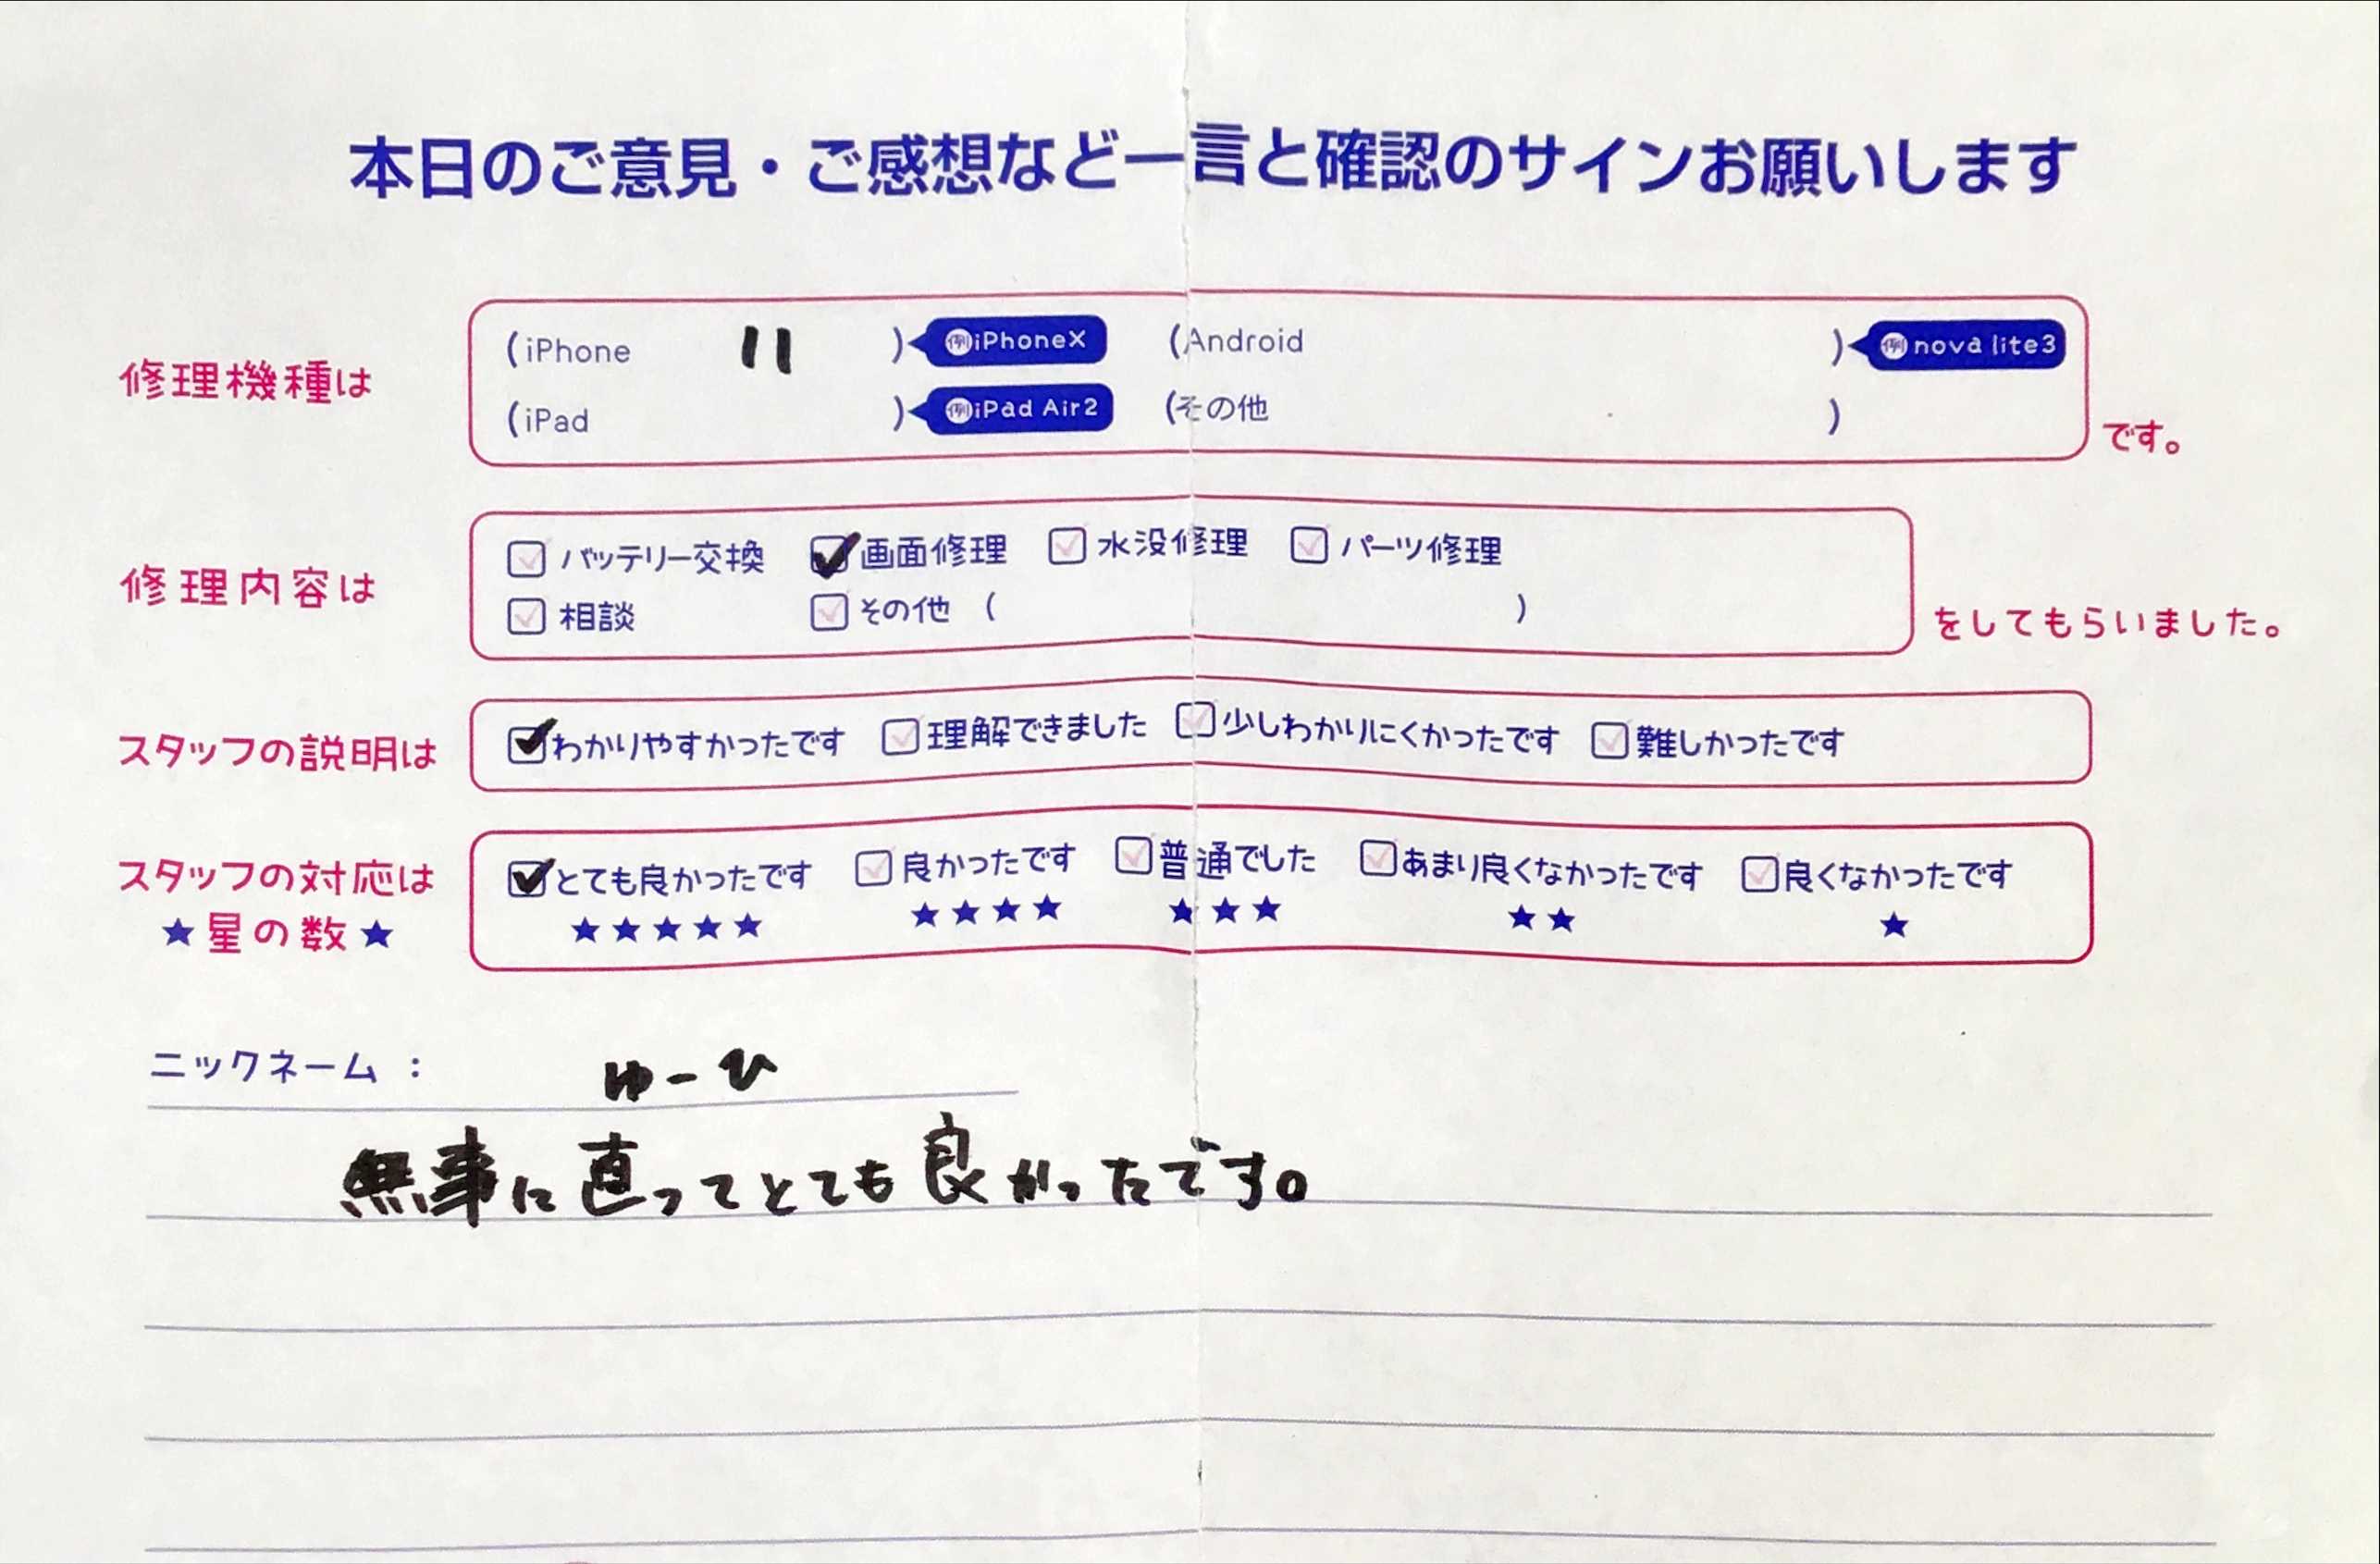 本日のご意見・ご感想など一言と確認のサインお願いします
修理機種は
(iPhone 11 ) 例iPhoneX (Android ) 例nova lite3
(iPad ) 例iPad Air2 (その他 )
です。
修理内容は
バッテリー交換 画面修理 水没修理 パーツ修理
相談 その他 ( )
をしてもらいました。
スタッフの説明は わかりやすかったです 理解できました 少しわかりにくかったです 難しかったです
スタッフの対応は とても良かったです 良かったです 普通でした あまり良くなかったです 良くなかったです
★星の数★ ★★★★★ ★★★★ ★★★ ★★ ★
ニックネーム : ゆーひ
無事に直ってとても良かったです。